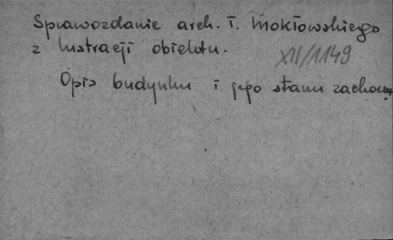 Sprawozdanie arch. T. Mokłowskiego
z lustracji obiektu.
XII/1149
Opis budynku i jego stanu zachow.